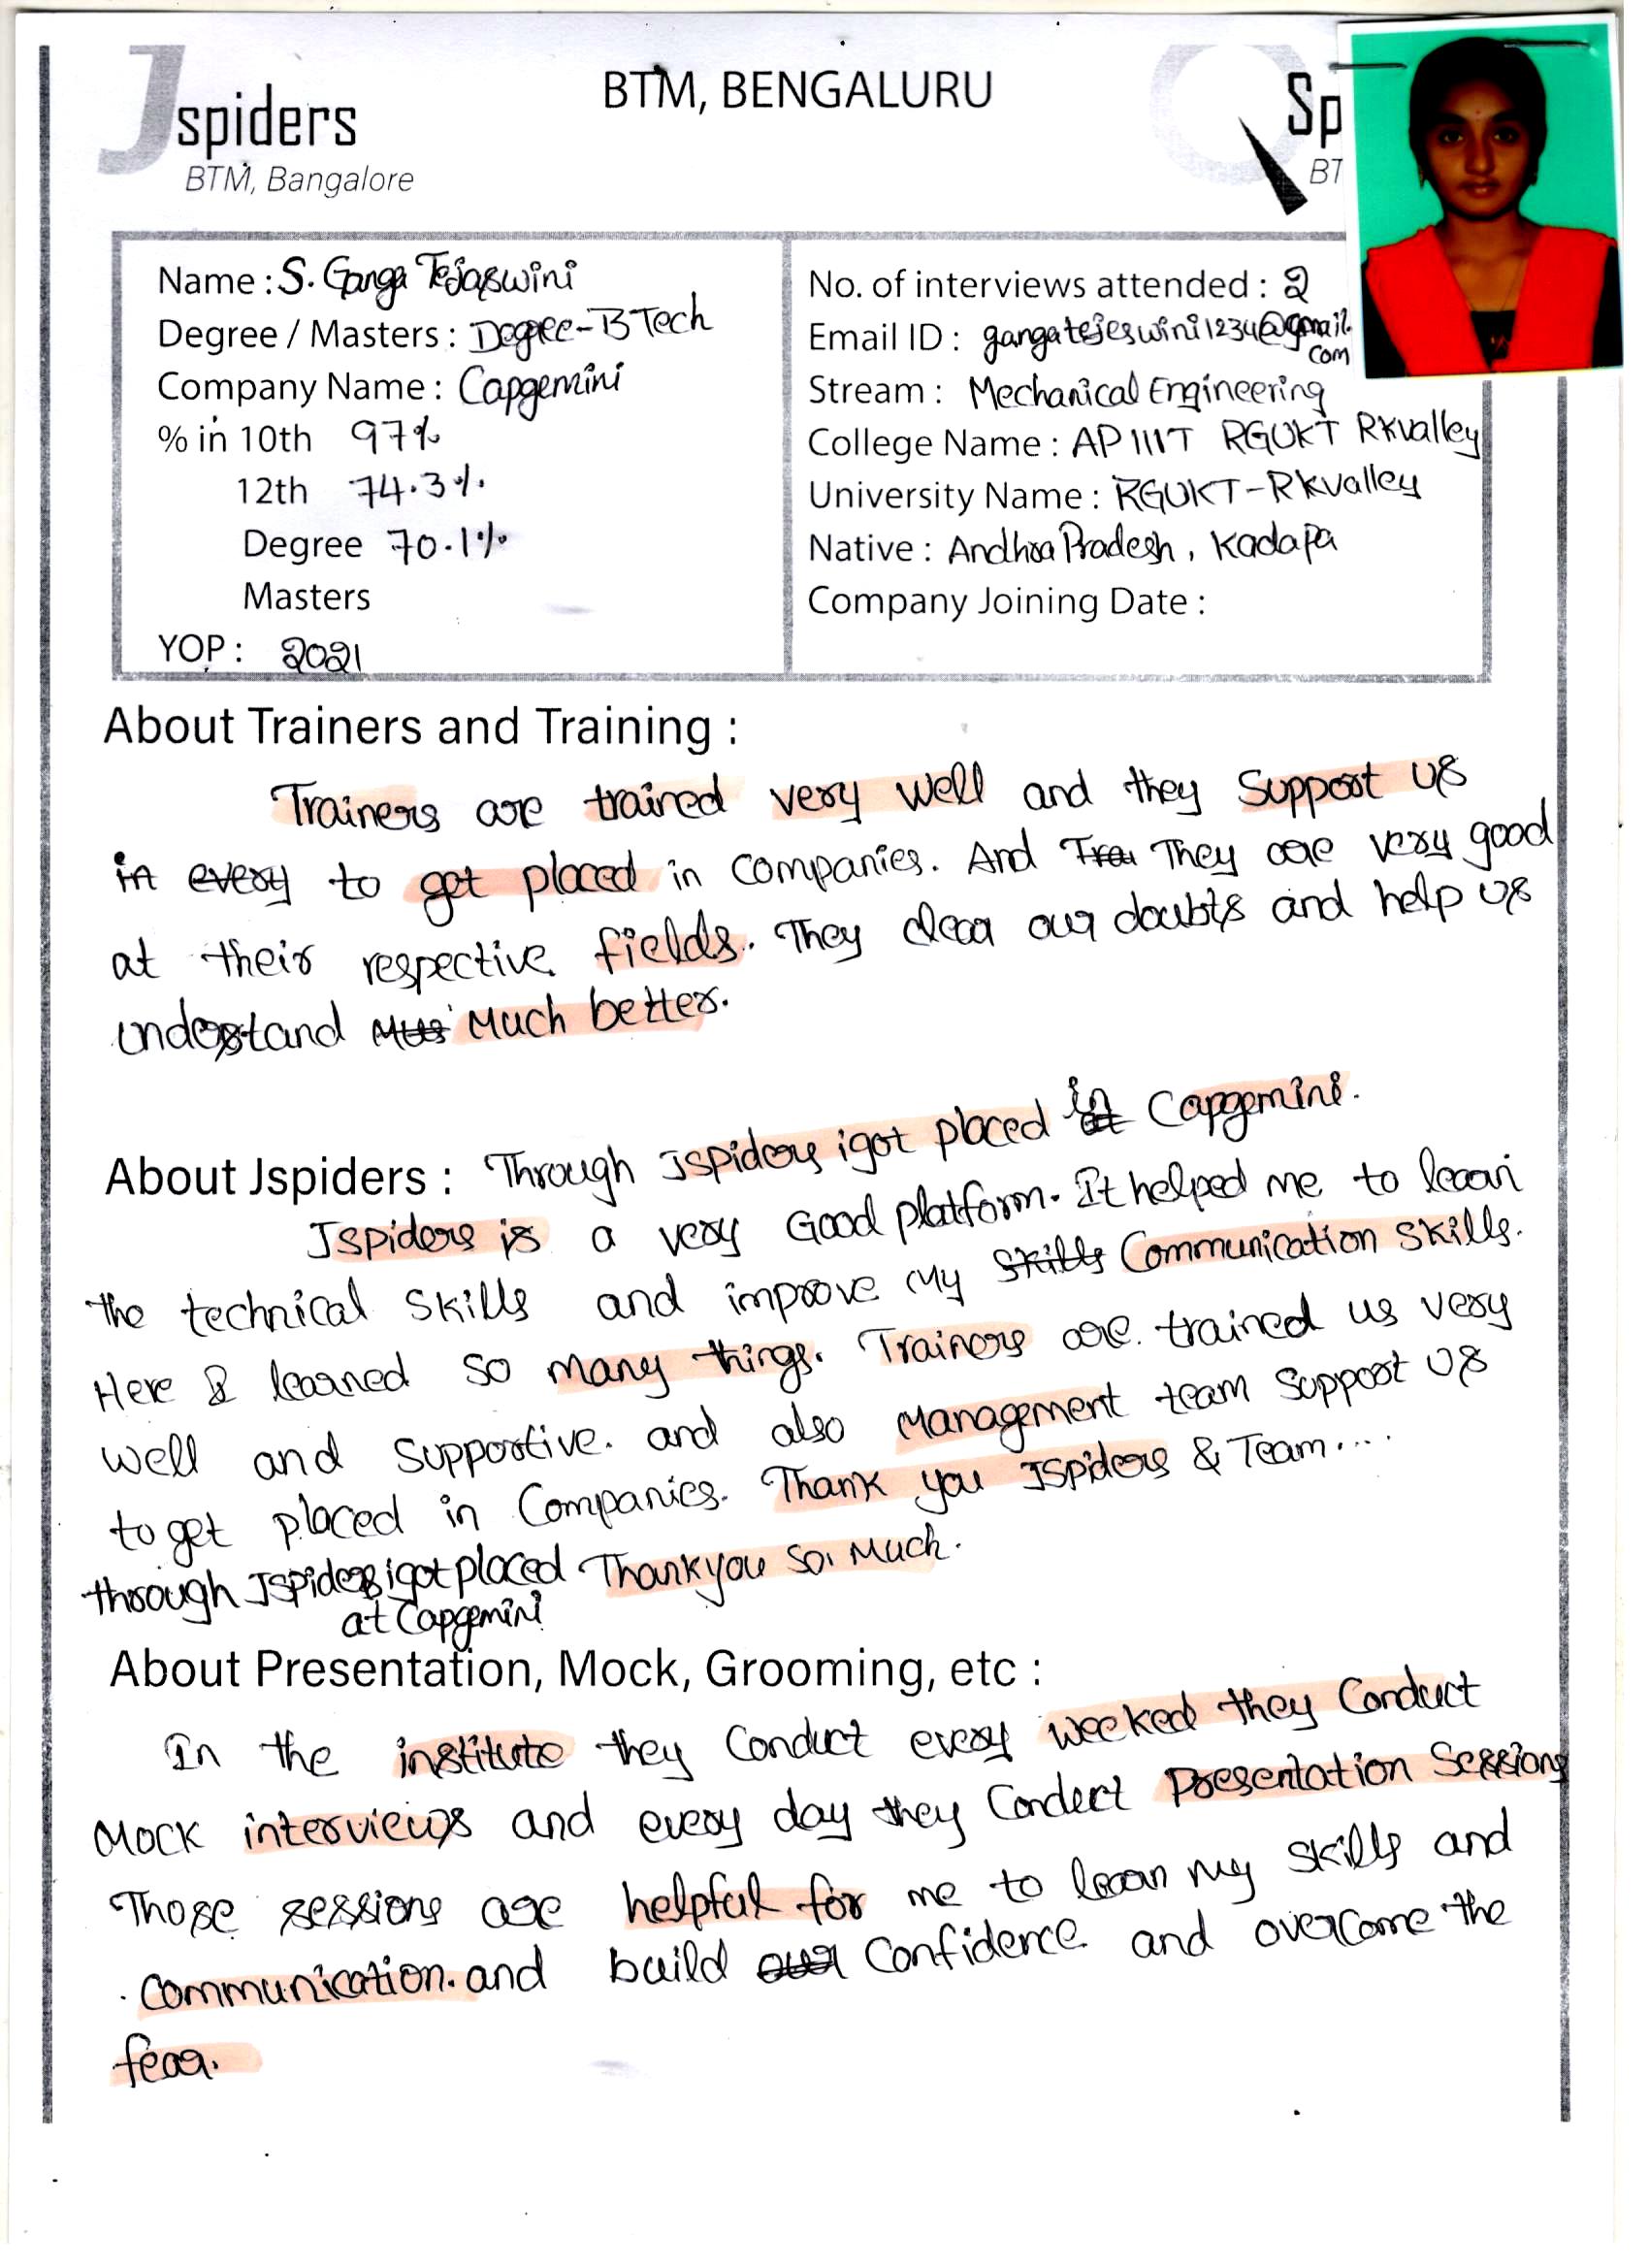 Jspiders
BTM, Bangalore
BTM, BENGALURU
Sp
BT
Name : S. Ganga Tejaswini
Degree / Masters : Degree-B Tech
Company Name : Capgemini
% in 10th 97%
12th 74.3%
Degree 70.1%
Masters
YOP : 2021
No. of interviews attended : 2
Email ID : gangatejeswini1234@gmail.
com
Stream : Mechanical Engineering
College Name : AP IIIT RGUKT Rkvalley
University Name : RGUKT-Rkvalley
Native : Andhra Pradesh, Kadapa
Company Joining Date :
About Trainers and Training :
Trainers are trained very well and they Support us
in every to get placed in companies. And Tra They are very good
at their respective fields. They clear our doubts and help us
understand Mus Much better.
About Jspiders : Through Jspiders i got placed in Capgemini.
Jspiders is a very Good platform. It helped me to learn
the technical skills and improve my skills Communication skills.
Here I learned so many things. Trainers are trained us very
well and supportive. and also Management team support us
to get placed in Companies. Thank you Jspiders & Team....
through Jspiders i got placed Thankyou so Much.
at Capgemini
About Presentation, Mock, Grooming, etc :
In the institute they Conduct every weeked they Conduct
Mock interviews and every day they Conduct Presentation Sessions
Those sessions are helpful for me to learn my skills and
communication. and build our Confidence and overcome the
fear.